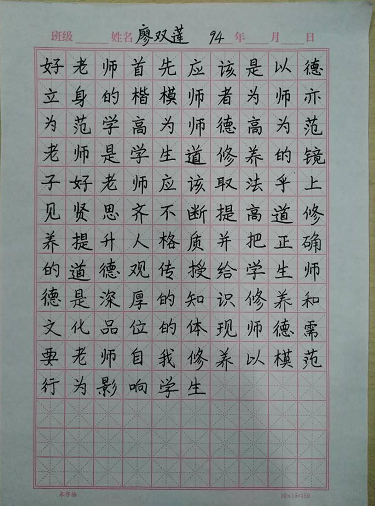 班级 姓名 廖双莲 94 年 月 日
好老师首先应该是以德
立身的楷模师者为师亦
为范学高为师德高为范
老师是学生道修养的镜
子好老师应该取法乎上
见贤思齐不断提高道修
养提升人格质并把正确
的道德观传授给学生师
德是深厚的知识修养和
文化品位的体现师德需
要老师自我修养以模范
行为影响学生